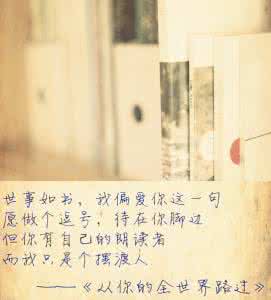 世事如书，我偏爱你这一句
愿做个逗号，待在你脚边
但你有自己的朗读者
而我只是个摆渡人
——《从你的全世界路过》